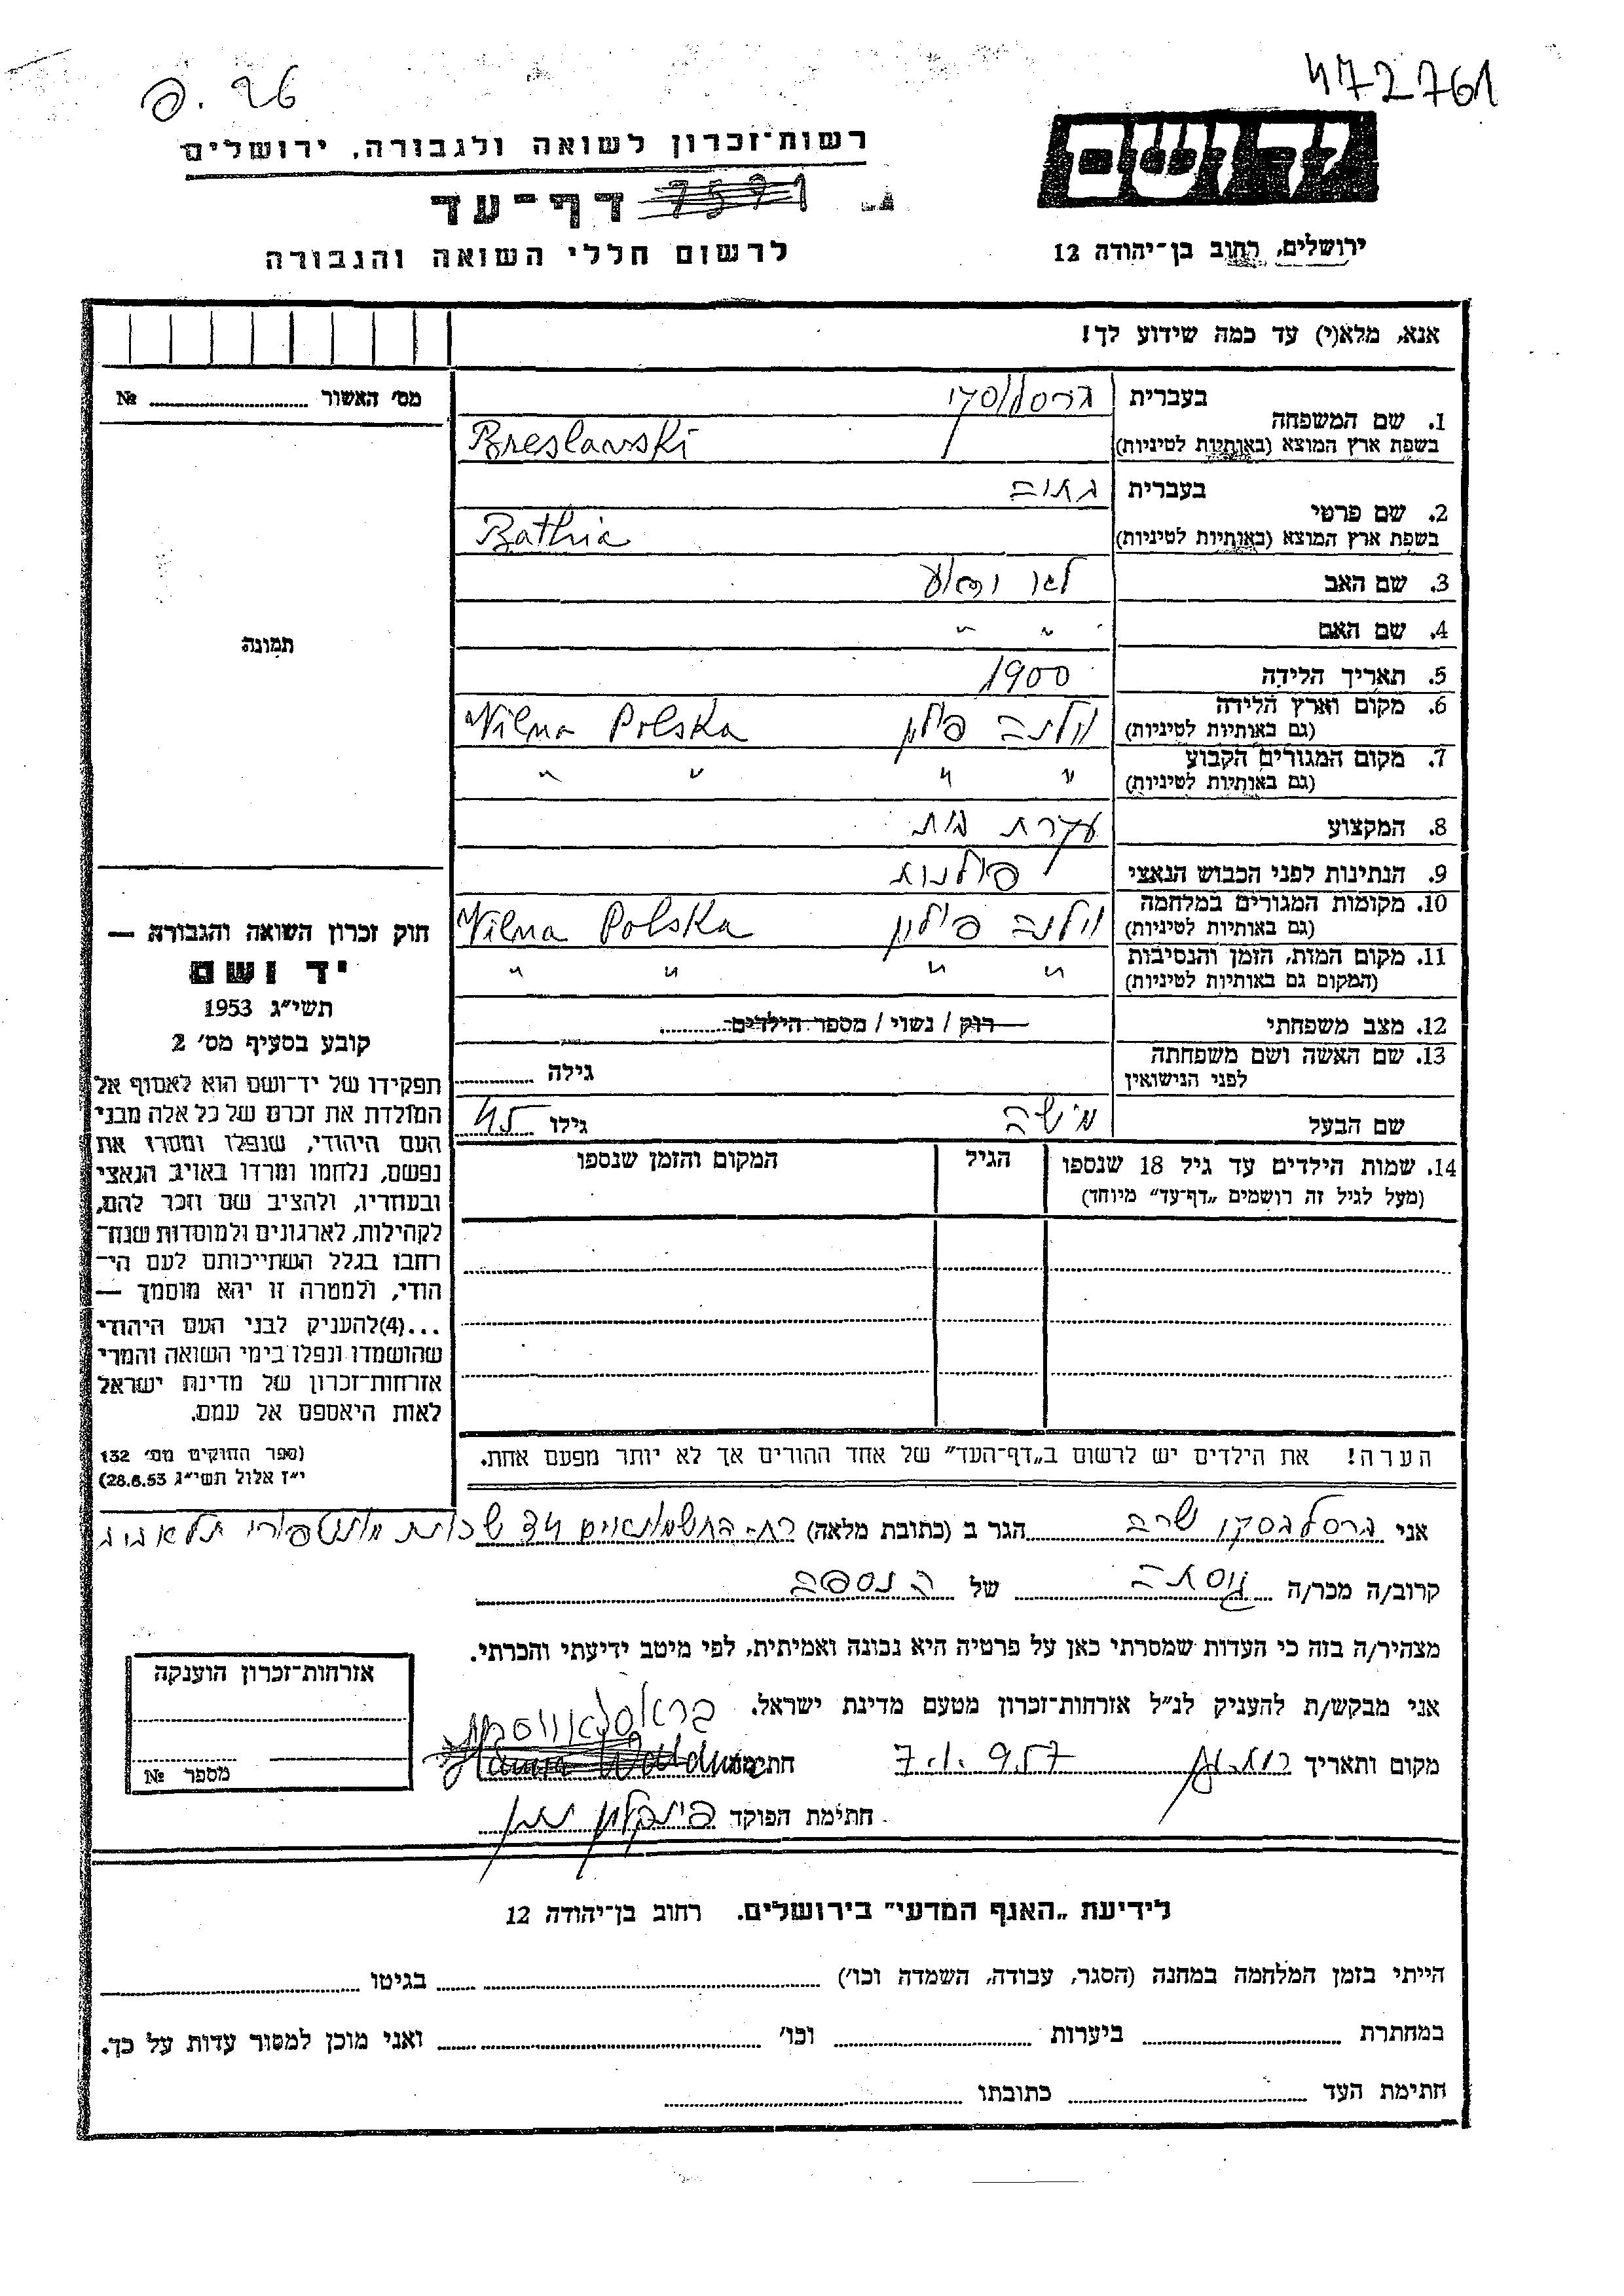 472761
פ. 26
יד ושם
רשות־זכרון לשואה ולגבורה, ירושלים
דף־עד
ירושלים, רחוב בן־יהודה 12
לרשום חללי השואה והגבורה
אנא, מלא(י) עד כמה שידוע לך!
מס' האשור № 
1. שם המשפחה
בעברית ברסלבסקי
בשפת ארץ המוצא (באותיות לטיניות) Breslawski
2. שם פרטי
בעברית בתיה
בשפת ארץ המוצא (באותיות לטיניות) Bathia
3. שם האב לא ידוע
4. שם האם " "
5. תאריך הלידה 1900
6. מקום וארץ הלידה (גם באותיות לטיניות) וילנה פולין Wilna Polska
7. מקום המגורים הקבוע (גם באותיות לטיניות) " " " "
8. המקצוע עקרת בית
9. הנתינות לפני הכבוש הנאצי פולנית
10. מקומות המגורים במלחמה (גם באותיות לטיניות) וילנה פולין Wilna Polska
11. מקום המות, הזמן והנסיבות (המקום גם באותיות לטיניות) " " " "
12. מצב משפחתי רוק / נשוי / מספר הילדים
13. שם האשה ושם משפחתה לפני הנישואין גילה
שם הבעל מישה גילו 45
14. שמות הילדים עד גיל 18 שנספו (מעל לגיל זה רושמים „דף־עד" מיוחד)
הגיל
המקום והזמן שנספו
הערה! את הילדים יש לרשום ב„דף־העד" של אחד ההורים אך לא יותר מפעם אחת.
תמונה
חוק זכרון השואה והגבורה —
יד ושם
תשי"ג 1953
קובע בסעיף מס' 2
תפקידו של יד־ושם הוא לאסוף אל
המולדת את זכרם של כל אלה מבני
העם היהודי, שנפלו ומסרו את
נפשם, נלחמו ומרדו באויב הנאצי
ובעוזריו, ולהציב שם וזכר להם,
לקהילות, לארגונים ולמוסדות שנח־
רחבו בגלל השתייכותם לעם הי־
הודי, ולמטרה זו יהא מוסמך —
...(4)להעניק לבני העם היהודי
שהושמדו ונפלו בימי השואה והמרי
אזרחות־זכרון של מדינת ישראל
לאות היאספם אל עמם.
(ספר החוקים מס' 132
י"ז אלול תשי"ג 28.8.53)
אני ברסלבסקי שרה הגר ב (כתובת מלאה) רח. החשמונאים שכונת מונטיפורי תל אביב
קרוב/ה מכר/ה גיסתה של הנספה
מצהיר/ה בזה כי העדות שמסרתי כאן על פרטיה היא נכונה ואמיתית, לפי מיטב ידיעתי והכרתי.
אני מבקש/ת להעניק לנ"ל אזרחות־זכרון מטעם מדינת ישראל.
מקום ותאריך חתימה
חתימת הפוקד
אזרחות־זכרון הוענקה
מספר №
לידיעת „האגף המדעי" בירושלים. רחוב בן־יהודה 12
הייתי בזמן המלחמה במחנה (הסגר, עבודה, השמדה וכו') בגיטו
במחתרת ביערות וכו' ואני מוכן למסור עדות על כך.
חתימת העד כתובתו